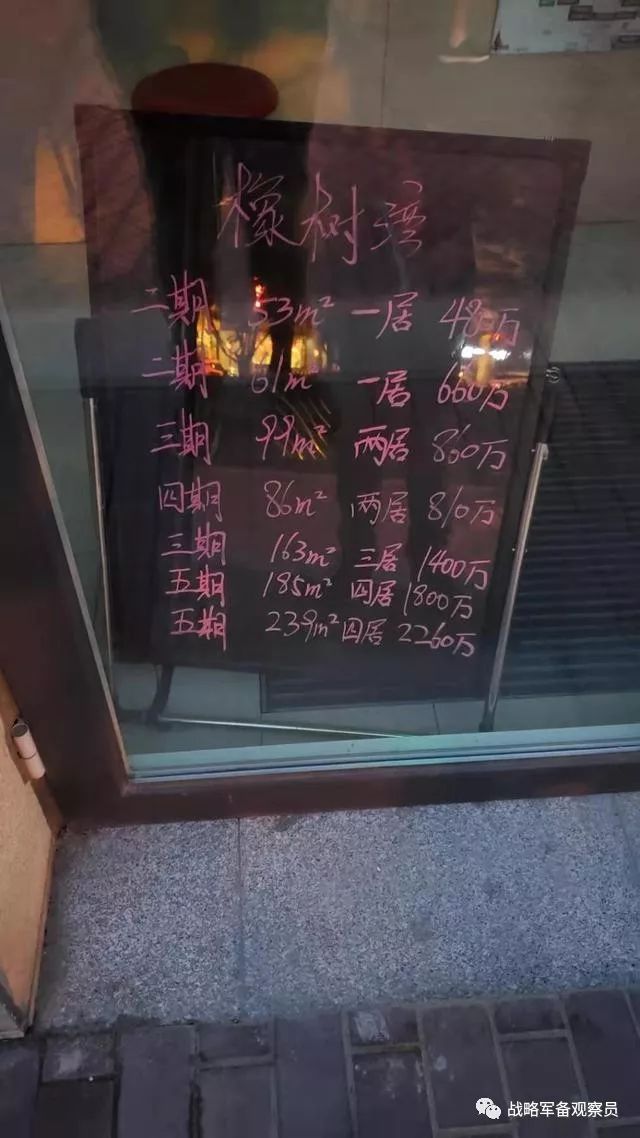 橡树湾
二期 53m² 一居 48万
二期 61m² 一居 660万
三期 99m² 两居 860万
四期 86m² 两居 810万
三期 163m² 三居 1400万
五期 185m² 四居 1800万
五期 239m² 四居 2260万
战略军备观察员